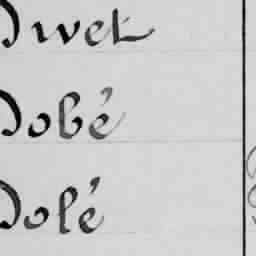 Divet
Dobé
Dolé